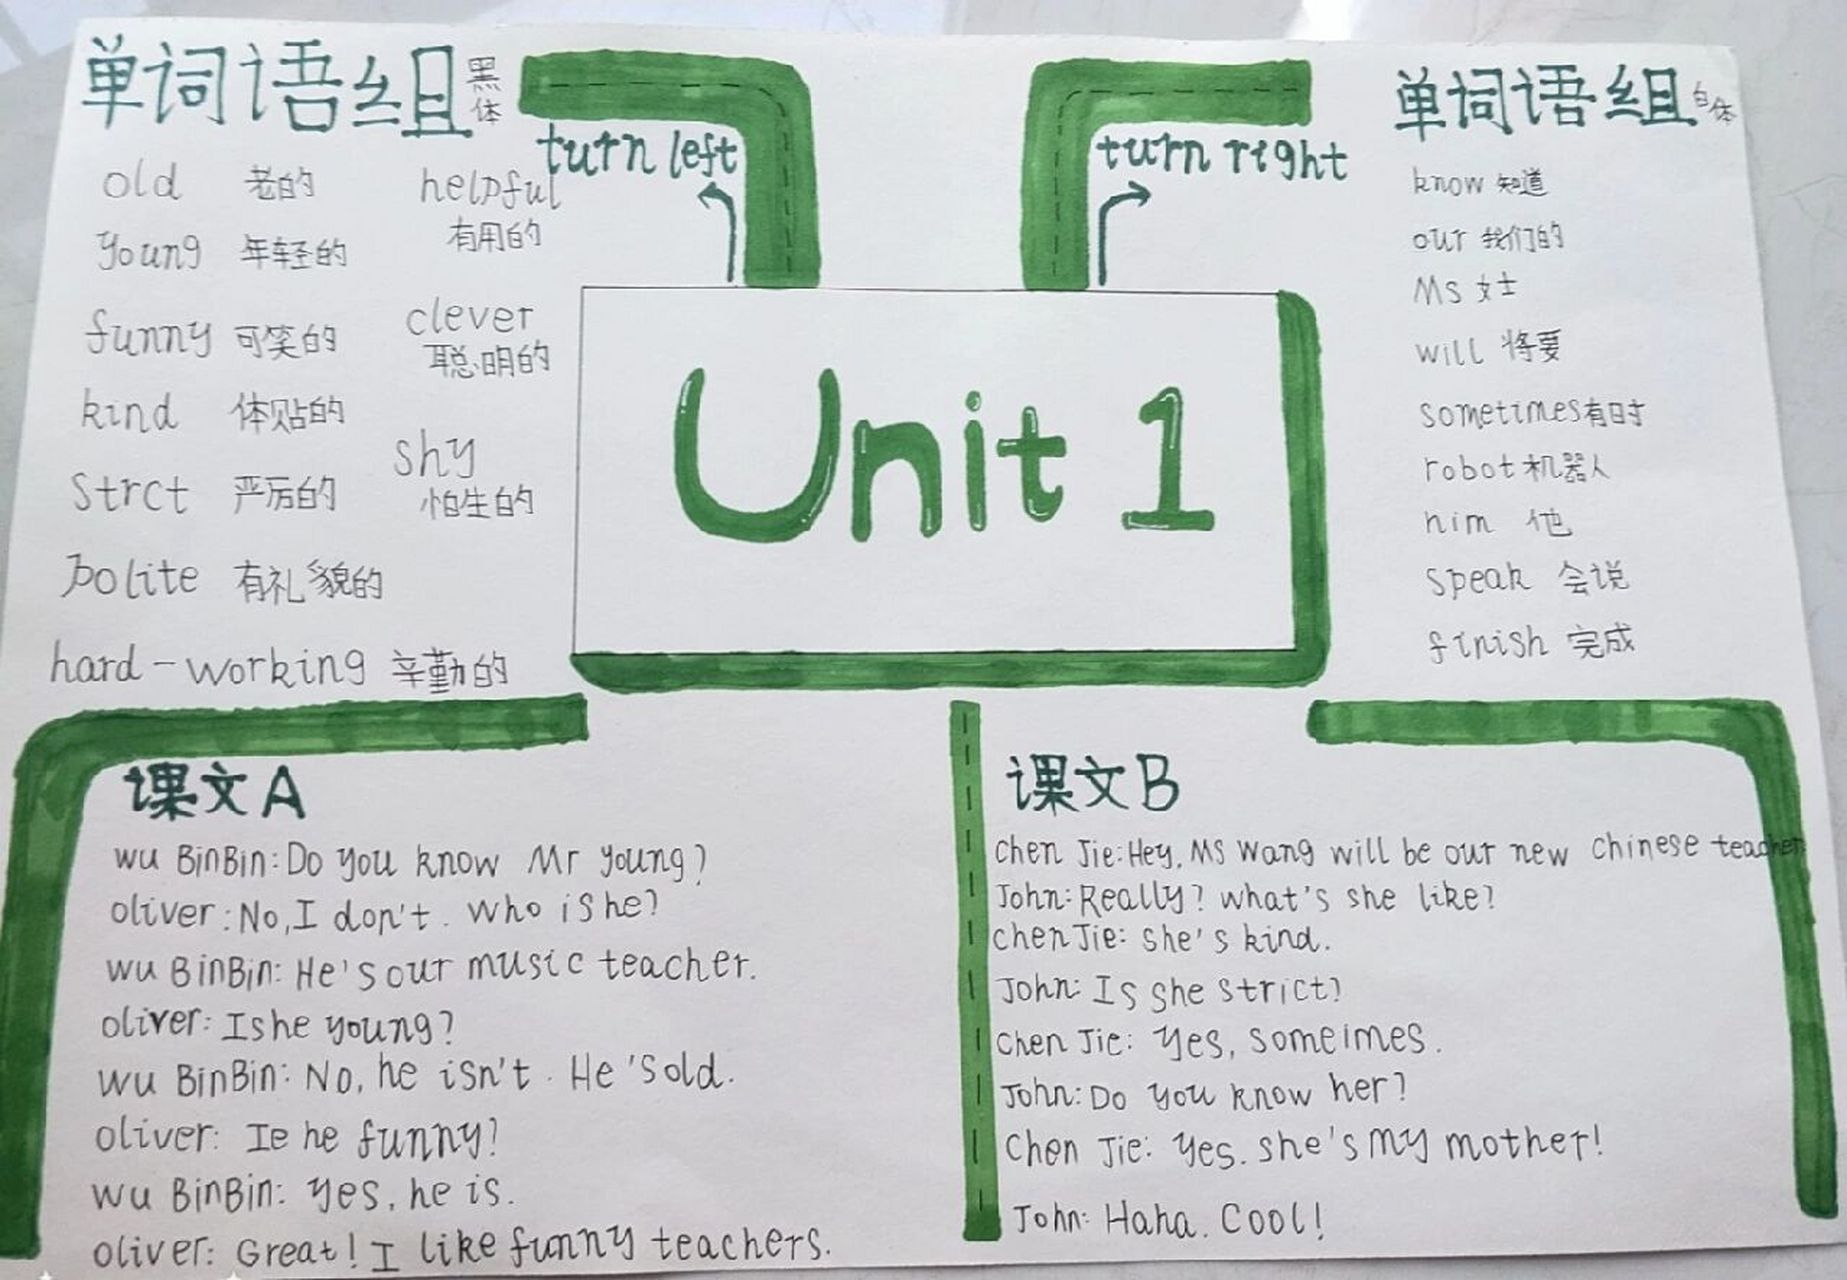 单词语组 黑体
old 老的
helpful
有用的
young 年轻的
funny 可笑的
clever
聪明的
kind 体贴的
shy
怕生的
Strct 严厉的
Polite 有礼貌的
hard-working 辛勤的
turn left
turn right
Unit 1
单词语组 白体
know 知道
our 我们的
Ms 女士
will 将要
sometimes 有时
robot 机器人
him 他
speak 会说
finish 完成
课文A
wu BinBin: Do you know Mr young?
oliver: No, I don't. who is he?
wu BinBin: He's our music teacher.
oliver: Is he young?
wu BinBin: No, he isn't. He's old.
oliver: Ie he funny?
wu BinBin: yes, he is.
oliver: Great! I like funny teachers.
课文B
Chen Jie: Hey, MS Wang will be our new chinese teacher
John: Really? what's she like?
chen Jie: she's kind.
John: Is she strict?
Chen Jie: yes, someimes.
John: Do you know her?
Chen Jie: yes. she's my mother!
John: Haha. Cool!